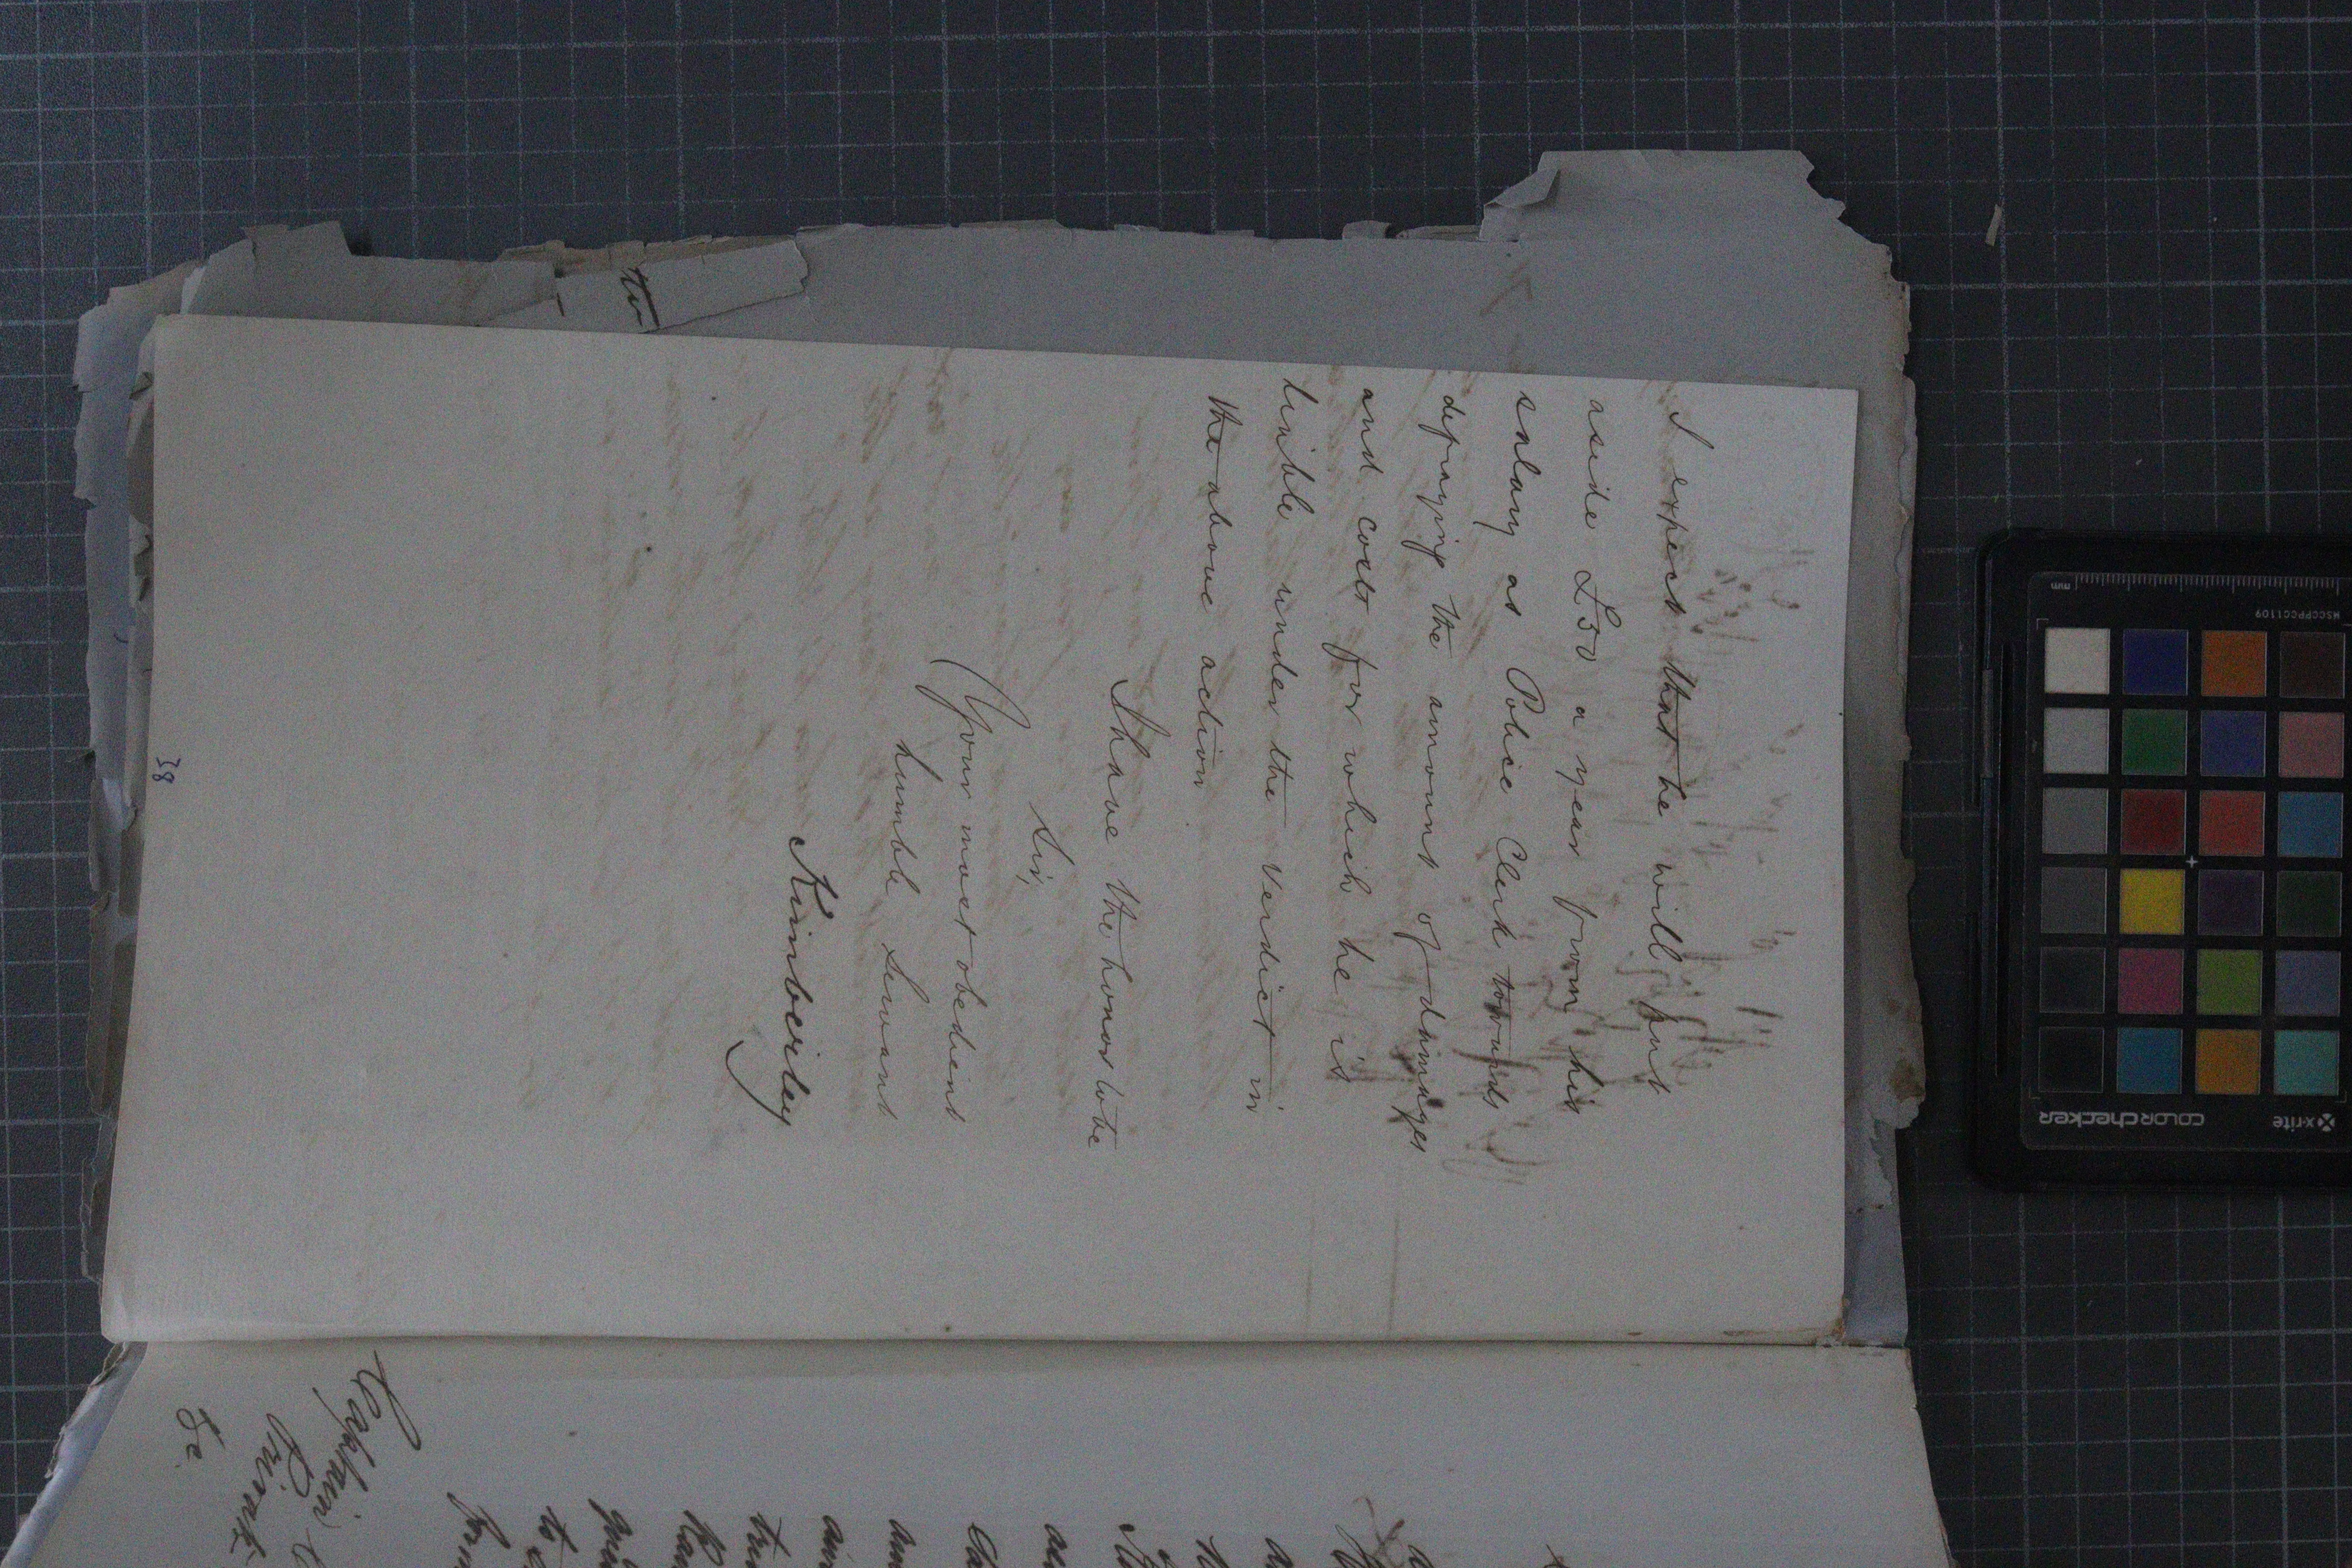 I expect that he will put
aside £50 a year from his
salary as Police Clerk towards
defraying the amount of damages
and costs for which he is
liable under the Verdict in
the above action
I have the honor to be
Sir,
Your most obedient
humble Servant
Kimberley
38
to
Captain
&c
x-rite
colorchecker
MSCCPPCC1109
mm